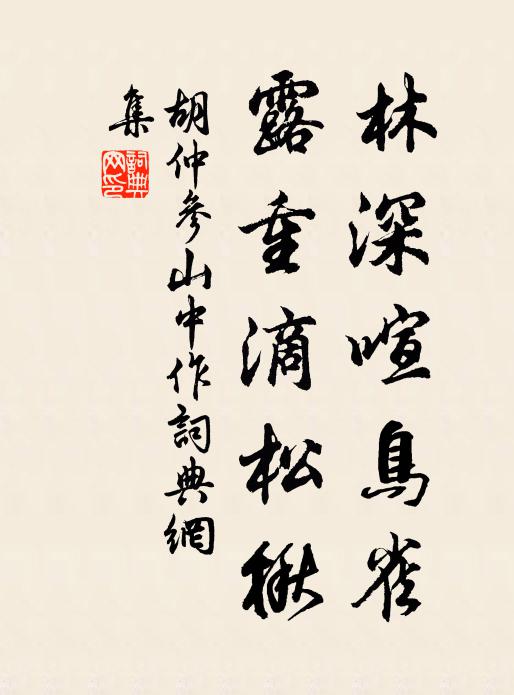 林深喧鳥雀
露重滴松楸
胡仲參山中作詞典網
集
詞典
网印